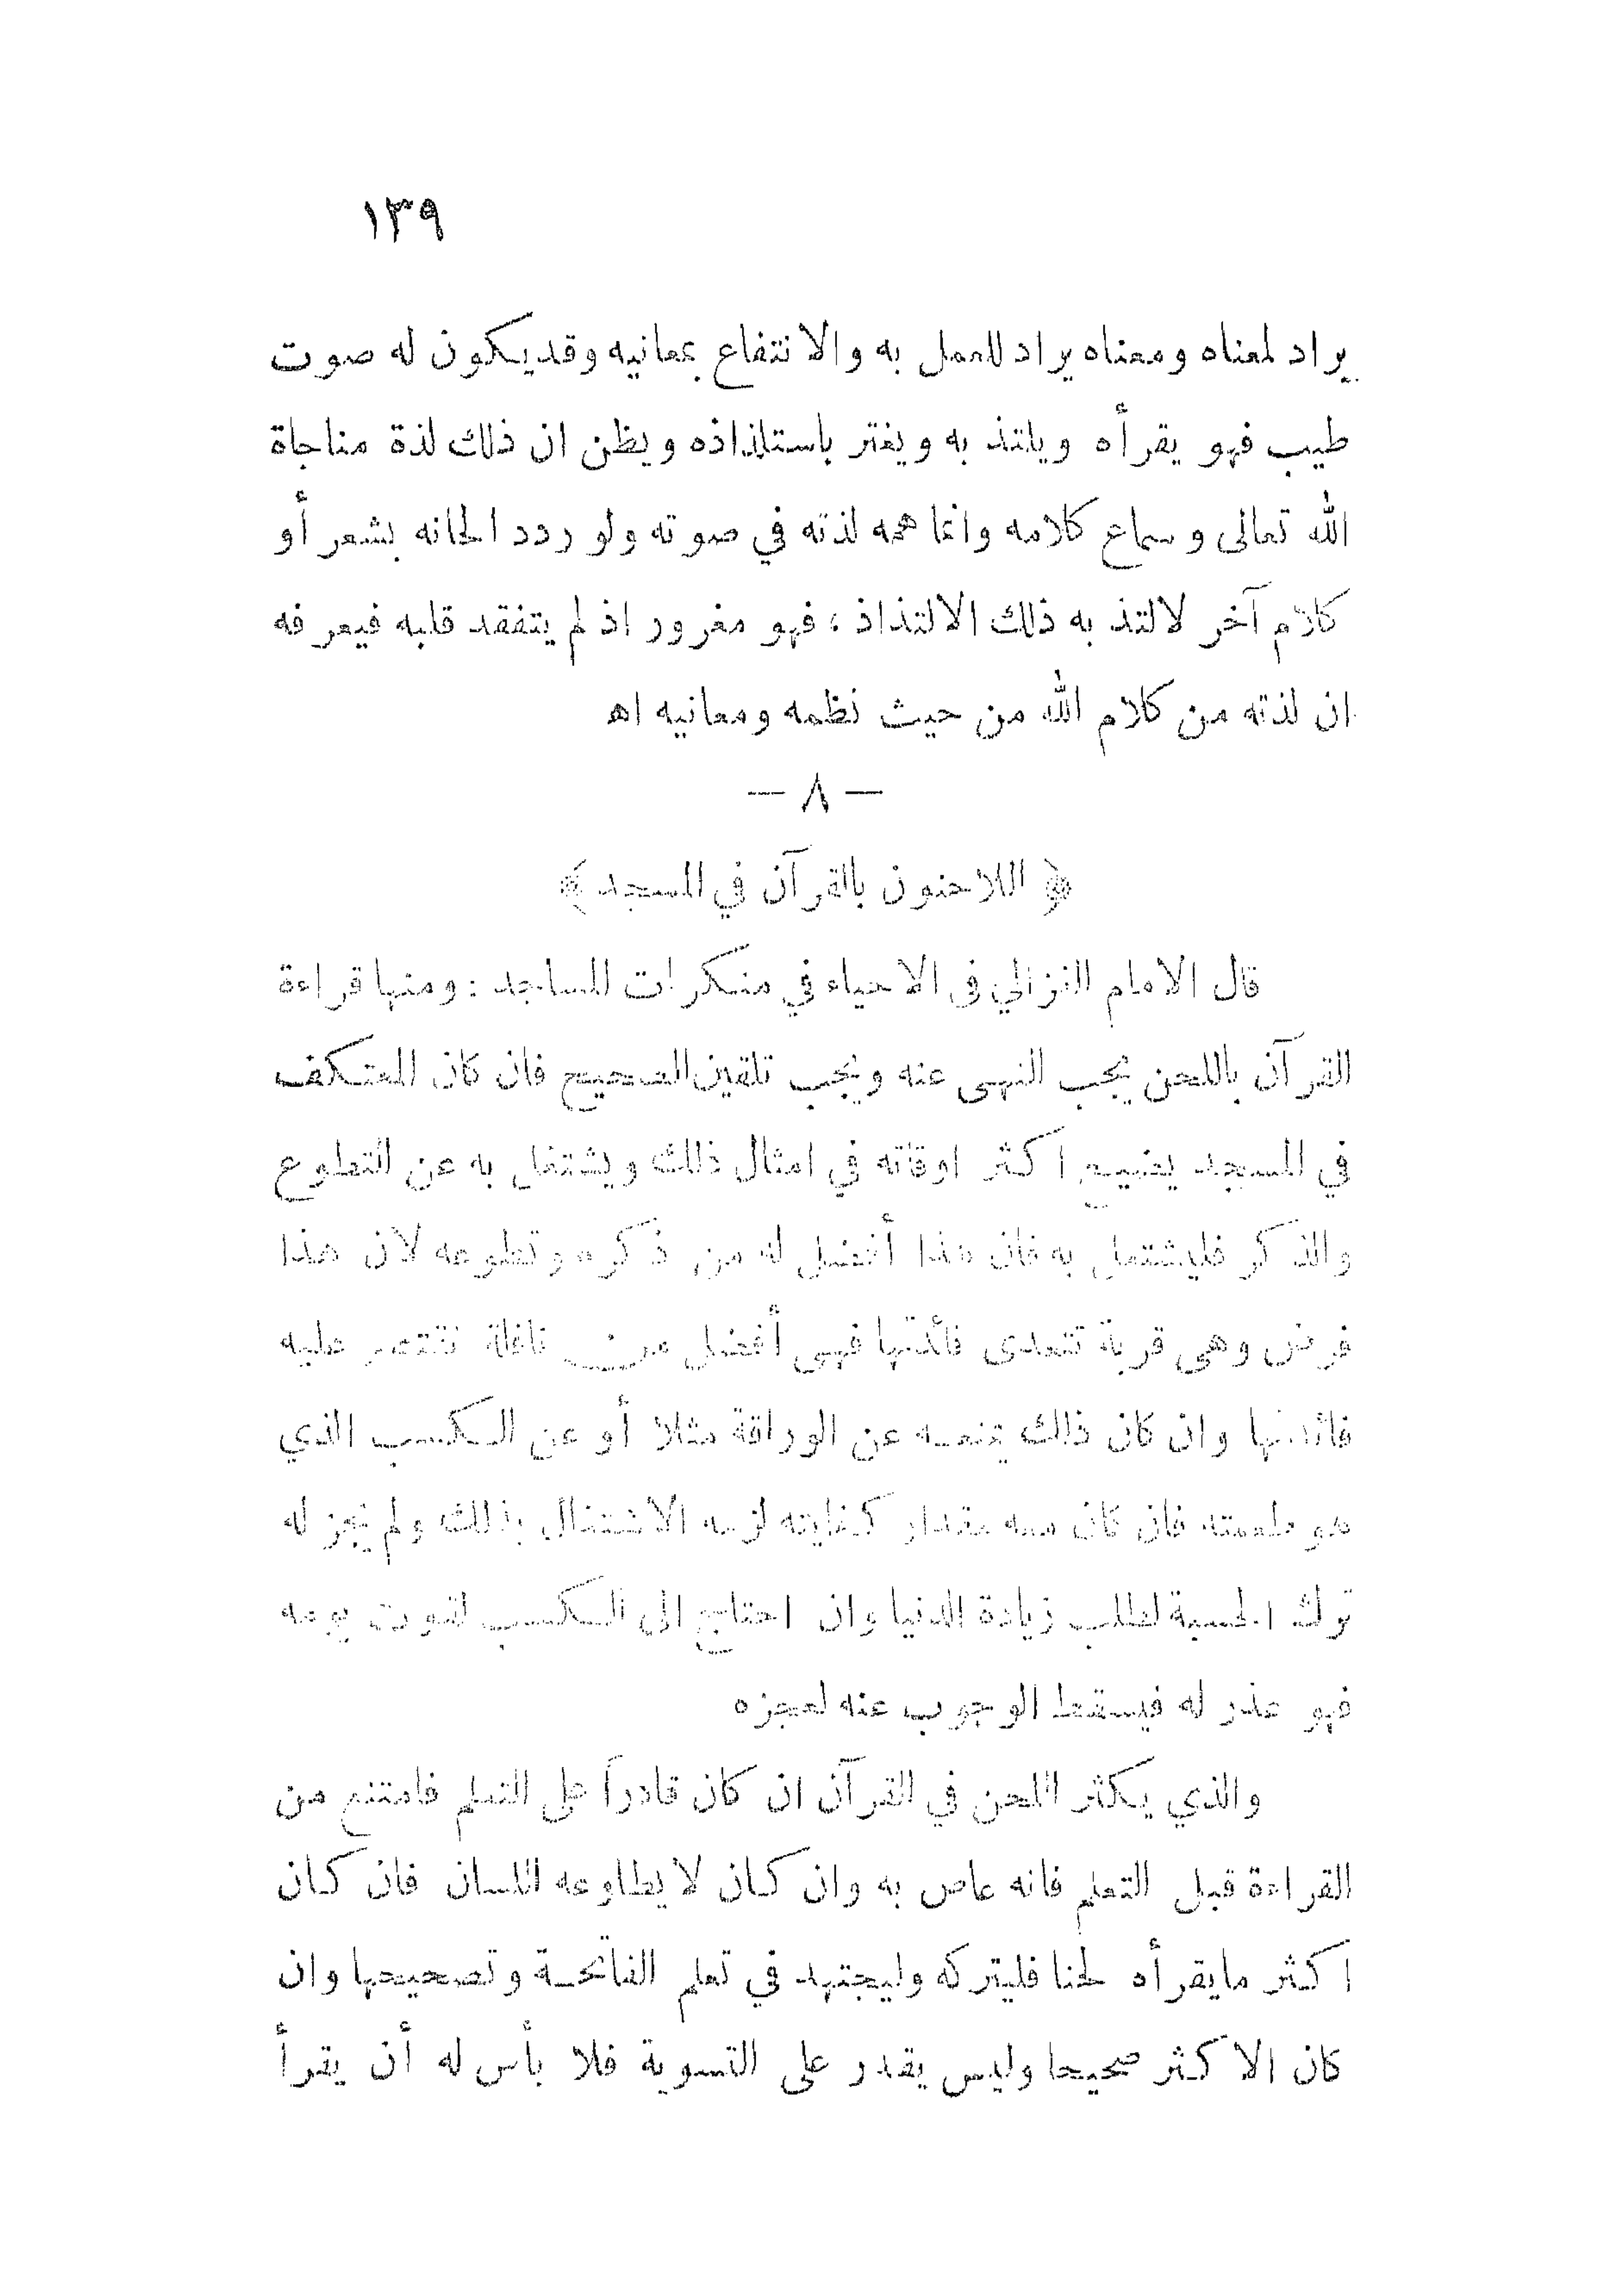 ١٣٩
يراد لمعناه ومعناه يراد للعمل به والانتفاع بمعانيه وقد يكون له صوت
طيب فهو يقرأه ويلتذ به ويغتر باستلذاذه ويظن ان ذلك لذة مناجاة
الله تعالى وسماع كلامه وانما همه لذته في صوته ولو ردد الحانه بشعر أو
كلام آخر لالتذ به ذلك الالتذاذ ، فهو مغرور اذ لم يتفقد قلبه فيعرفه
ان لذته من كلام الله من حيث نظمه ومعانيه اهـ
— ٨ —
﴿ اللاحنون بالقرآن في المسجد ﴾
قال الامام الغزالي فى الاحياء في منكرات المساجد : ومنها قراءة
القرآن باللحن يجب النهى عنه ويجب تلقين الصحيح فان كان المعتكف
في المسجد يضيع اكثر اوقاته في امثال ذلك ويشتغل به عن التطوع
والذكر فليشتغل به فان هذا أفضل له من ذكره وتطوعه لان هذا
فرض وهى قربة تتعدى فائدتها فهى أفضل من نافلة تقتصر عليه
فائدتها وان كان ذلك يمنعه عن الوراقة مثلا أو عن الكسب الذي
هو طعمته فان كان معه مقدار كفايته لزمه الاشتغال بذلك ولم يجز له
ترك الحسبة لطلب زيادة الدنيا وان احتاج الى الكسب لقوت يومه
فهو عذر له فيسقط الوجوب عنه لعجزه
والذي يكثر اللحن في القرآن ان كان قادراً على التعلم فامتنع من
القراءة قبل التعلم فانه عاص به وان كان لا يطاوعه اللسان فان كان
اكثر مايقرأه لحنا فليتركه وليجتهد في تعلم الفاتحة وتصحيحها وان
كان الاكثر صحيحا وليس يقدر على التسوية فلا بأس له أن يقرأ